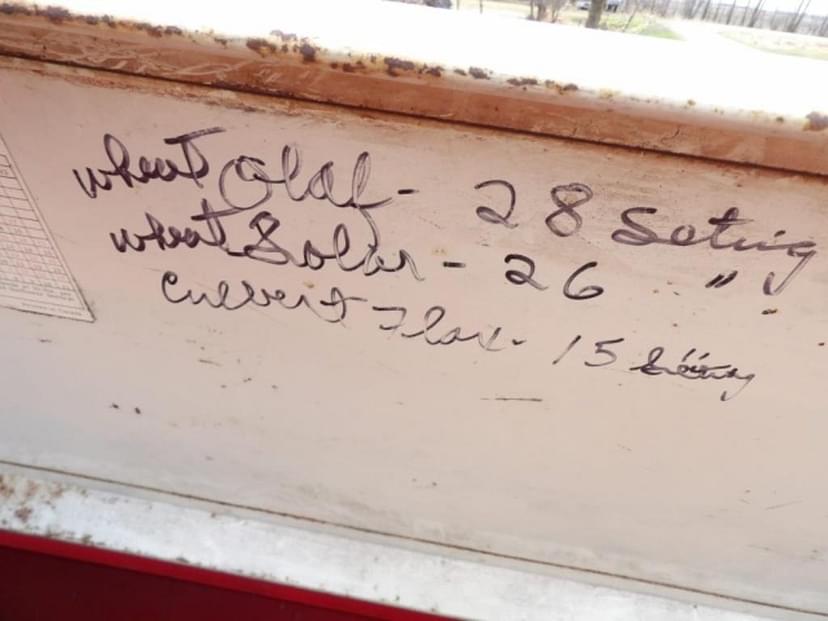 wheat Olaf - 28 Seting
wheat Solar - 26 "
Culbert Flax - 15